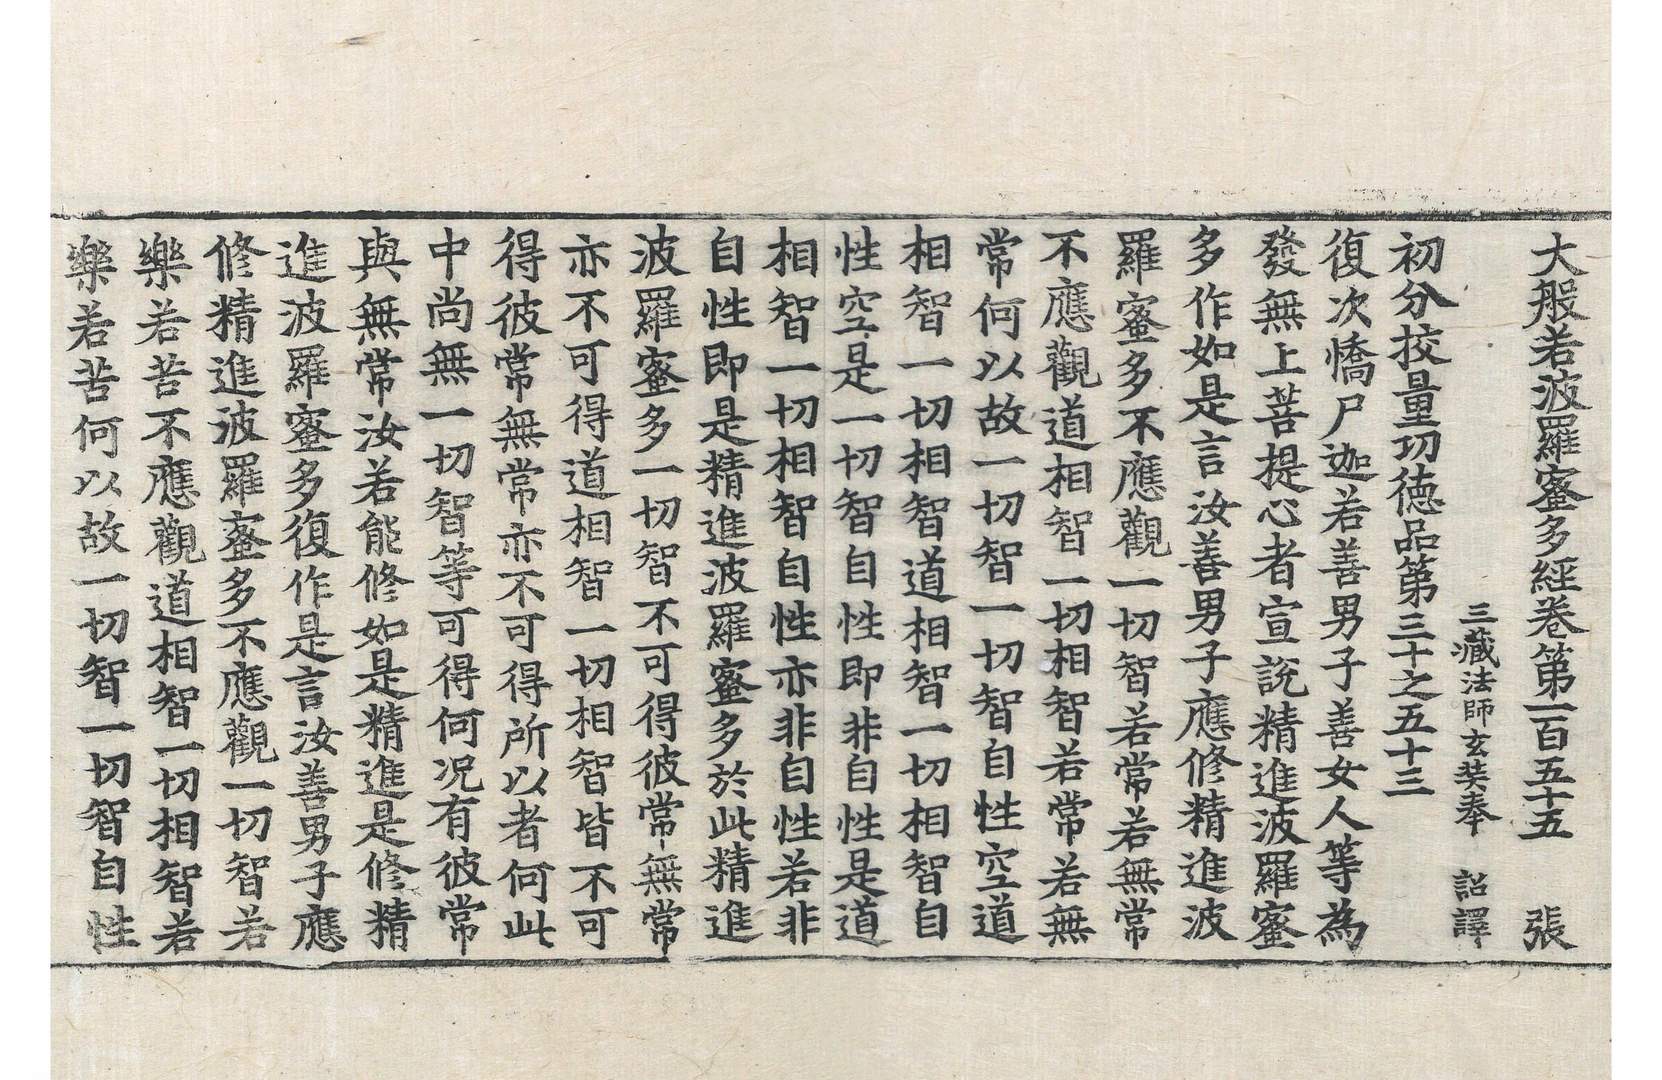 大般若波羅蜜多經卷第一百五十五 張
三藏法師玄奘奉 詔譯
初分挍量功德品第三十之五十三
復次憍尸迦若善男子善女人等為
發無上菩提心者宣說精進波羅蜜
多作如是言汝善男子應修精進波
羅蜜多不應觀一切智若常若無常
不應觀道相智一切相智若常若無
常何以故一切智一切智自性空道
相智一切相智道相智一切相智自
性空是一切智自性即非自性是道
相智一切相智自性亦非自性若非
自性即是精進波羅蜜多於此精進
波羅蜜多一切智不可得彼常無常
亦不可得道相智一切相智皆不可
得彼常無常亦不可得所以者何此
中尚無一切智等可得何况有彼常
與無常汝若能修如是精進是修精
進波羅蜜多復作是言汝善男子應
修精進波羅蜜多不應觀一切智若
樂若苦不應觀道相智一切相智若
樂若苦何以故一切智一切智自性